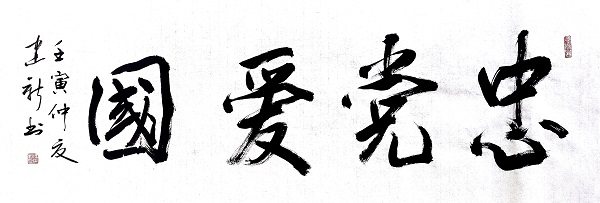 忠党爱國
壬寅仲夏
建新书